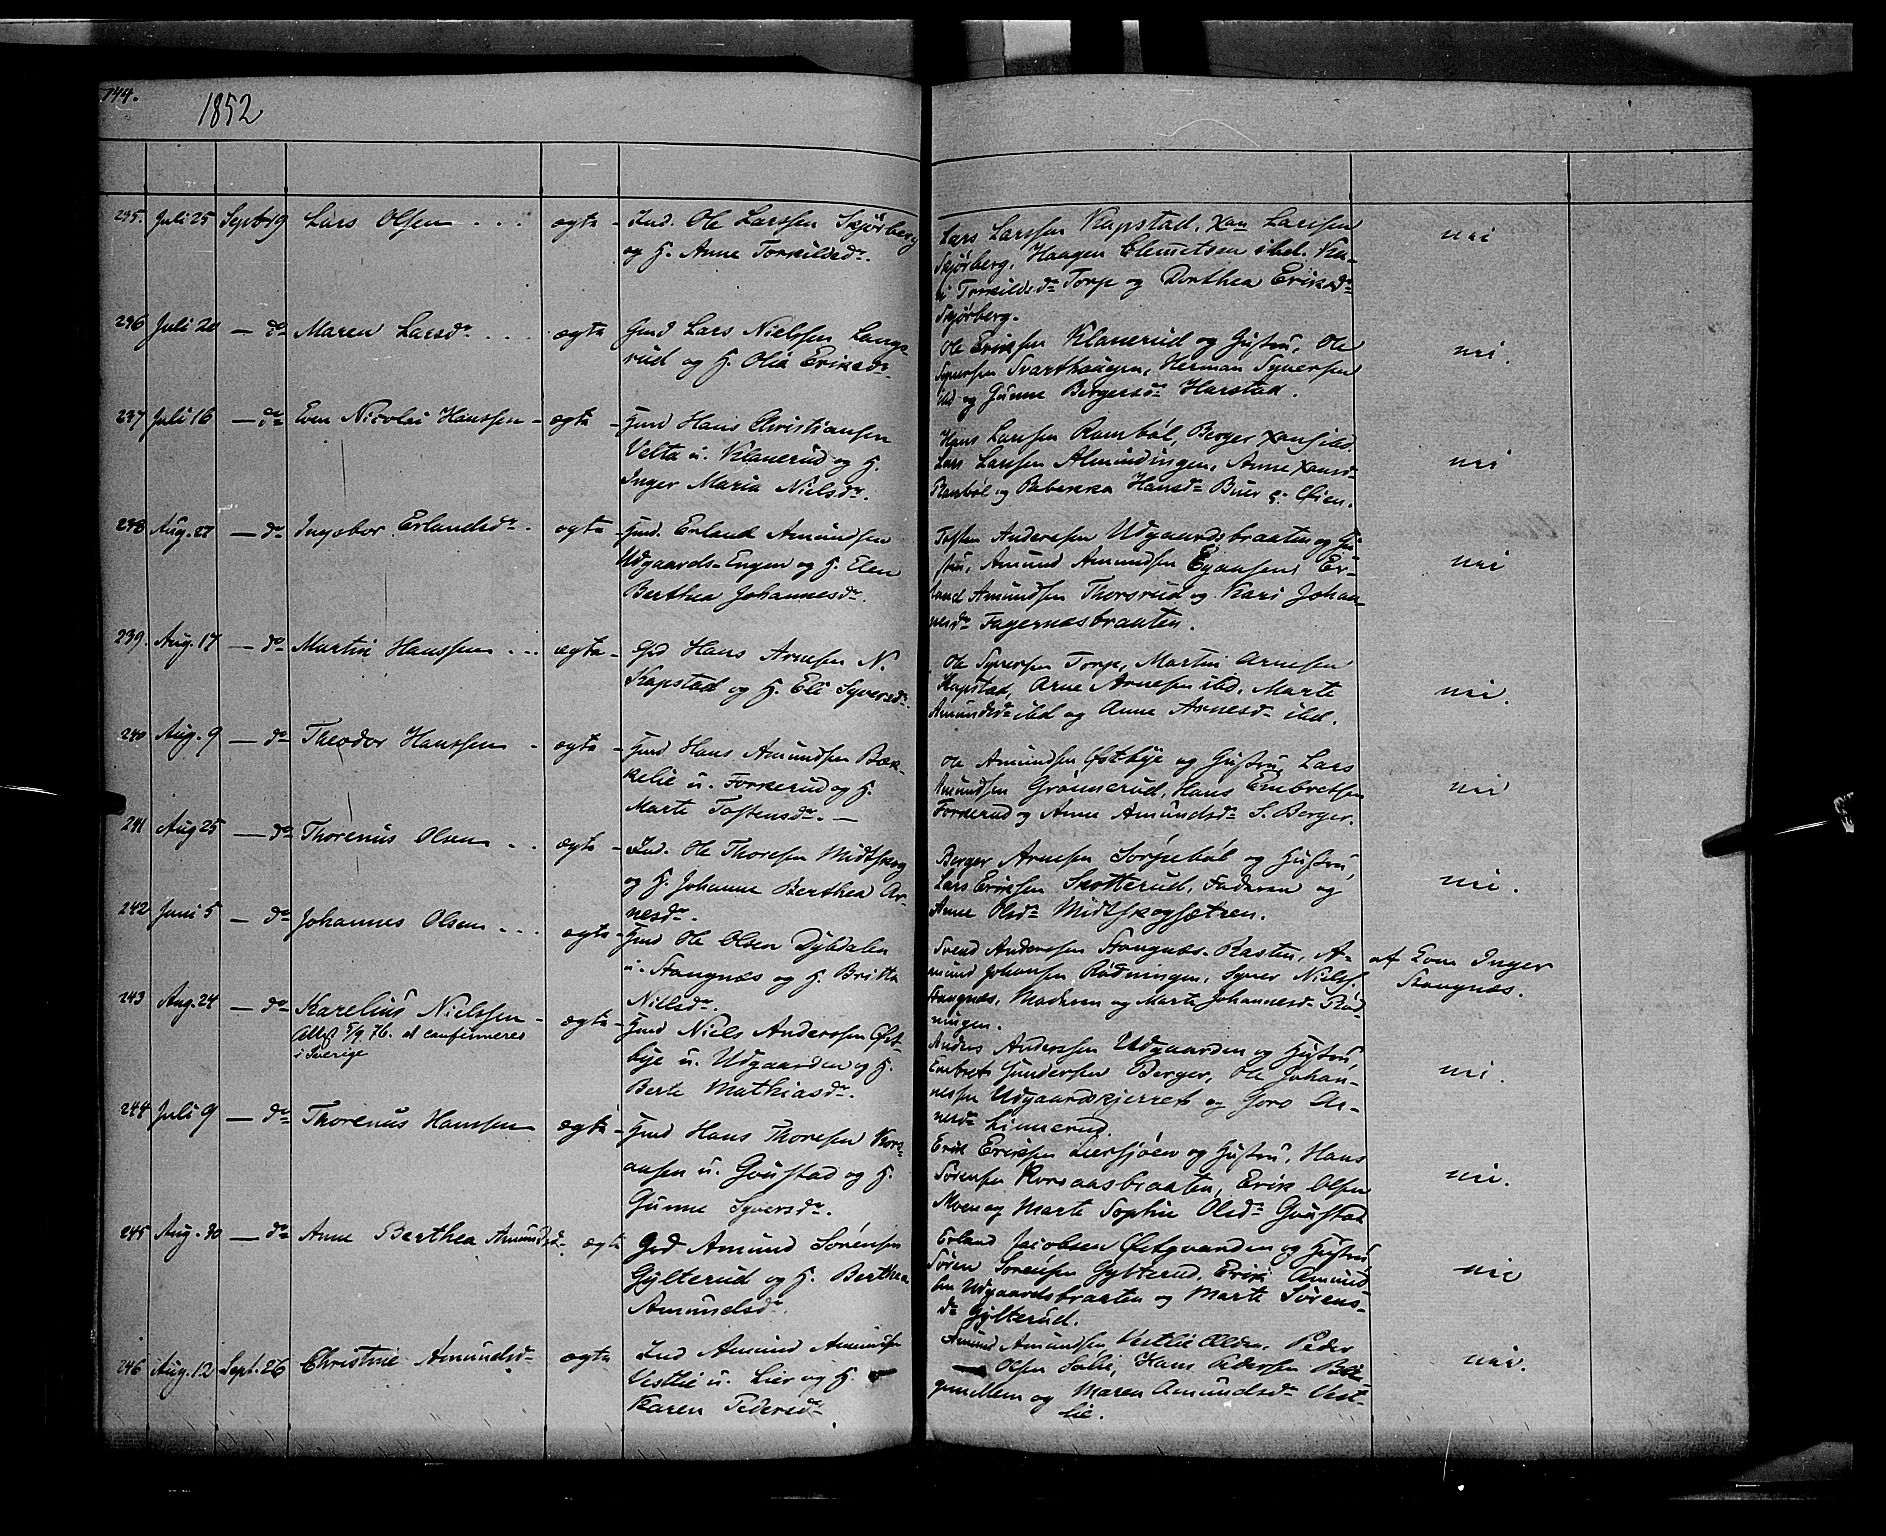 144.
1852
235. Juli 25 Sept 19 Lars Olsen ... ægte Ind. Ole Larssen Skjørberg
og H. Anne Torkilsd.
Lars Larssen Kapstad, Larssen
Skjørberg, Haagen Clemetsen ibd. Ka-
ri Torkildsd Torp og Dorthea Eriksd
Skjørberg.
nei
236 Juli 20 — do Maren Larsd ... ægte Gmd Lars Nielssen Lang-
rud og H. Olia Eriksd.
Ole Erikssen Klanerud og Hustru, Ole
Syversen Svarthaugen, Herman Syversen
ibd og Gunne Bergersd Harstad.
nei.
237 Juli 16 — do Even Nicolai Hanssen - ægte - Hmd Hans Christiansen
Velta u. Klanerud og H.
Inger Maria Nielsd.
Hans Larssen Rambøl, Berger ibd.
Lars Larssen Almindingen, Anne
Rambøl og Rebekka Hansd Buer Øien.
nei
238 Aug. 27 — do Ingebor Erlandsd. ægte Hmd. Erland Amundsen
Udgaards-Engen og H. Elen
Berthea Johannesd.
Tosten Anderssen Udgaardsbraaten og Hu-
stru, Amund Amundsen Er-
land Amundsen Thorsrud og Kari Johan-
nesd Fagernæsbraaten.
nei
239. Aug. 17 — do Martin Hanssen ... ægte Grd Hans Arnesen N.
Kapstad og H. Eli Syversd.
Ole Syversen Torp, Martin Arnesen
Kapstad, Arne Arnesen ibd, Marte
Amundsd ibd og Anne Arnesd ibd.
nei.
240 Aug. 9 — do Theodor Hanssen - ægte Hmd Hans Amundsen Bæk-
kelie u. Forkerud og H.
Marte Tostensd. —
Ole Amundsen Østbye og Hustru, Lars
Amundsen Grønnerud, Hans Embretsen
Forkerud og Anne Amundsd S. Berger.
nei
241 Aug 25 — do Thorenus Olsen .. ægte Ind. Ole Thoresen Midtskog
og H. Johanne Berthea Ar-
nesd.
Berger Arnesen Sorpebøl og Hustru,
Lars Eriksen Skotterud, Faderen og
Anne Olsd Midtskogsætren.
nei.
242 Juni 5 — do Johannes Olsen ... ægte Hmd Ole Olsen Dybdalen
u. Stangnæs og H. Britta
Nilsd.
Svend Anderssen Stangnæs-Kasten, A-
mund Johansen Rødningen, Syver Nielss.
Stangnæs, Moderen og Marte Johannesd Rød-
ningen.
af Eom Inger
Stangnæs.
243 Aug. 24 — do Karelius Nielssen - ægte
Attest 5/9.76. at confirmeres
i Sverige
Hmd Niels Anderssen Øst-
bye u. Udgaarden og H.
Berte Mathiasd.
Anders Anderssen Udgaarden og Hustru
Embret Gundersen Berger, Ole Johan-
nessen Udgaardskjerret og Goro Ar-
nesd Linnerud.
nei.
244 Juli 9 — do Thorenus Hanssen ægte Hmd Hans Thoresen Kors-
aasen u. Goustad og H.
Gunne Syversd.
Erik Erikssen Liersjøen og Hustru, Hans
Sørensen Korsaasbraaten, Erik Olsen
Moen og Marte Sophie Olsd Goustad
nei.
245 Aug. 30 — do Anne Berthea Amundsd. ægte Grd Amund Sørensen
Gylterud og H. Berthea
Amundsd.
Erland Jacobsen Østgaarden og Hustru
Søren Sørensen Gylterud, Erik Amund-
sen Udgaardsbraaten og Marte Sørens-
d Gylterud.
nei
246 Aug. 12 Sept. 26 Christine Amundsd ægte Ind Amund Amundsen
Vestlie u. Lier og H.
Karen Pedersd
Amund Amundsen Vestlie Peder
Olsen Sølie, Hans Pedersen
og Maren Amundsd Vest-
lie.
nei.